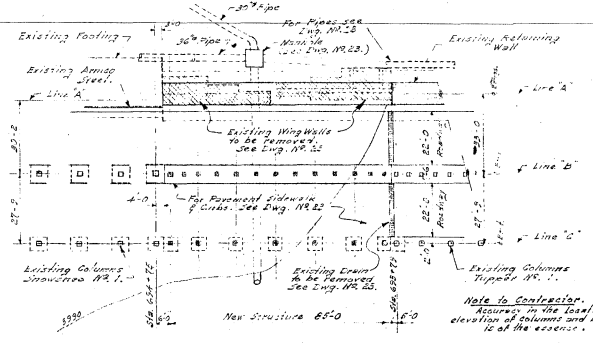 30" Pipe
3-0
For Pipes see
Dwg. Nº 28
Existing Footing
36" Pipe
Manhole
(See Dwg. Nº 23.)
Existing Retaining
Wall
Existing Armco
Steel.
Line "A"
Line "A"
Existing Wing Walls
to be removed.
See Dwg. Nº 23
22-0
Roadway
Line "B"
For Pavement Sidewalk
& Curbs. See Dwg. Nº 23
4-0
27-9
22-0
Roadway
27-9
Line "C"
Existing Columns
Snowshed Nº 1.
Existing Drain
to be removed
See Dwg. Nº 23.
2'0
Existing Columns
Sta. 694+75
6-0
New Structure 85-0
6-0
3990
Note to Contractor.
Accuracy in the
elevation of columns and
is of the essence.